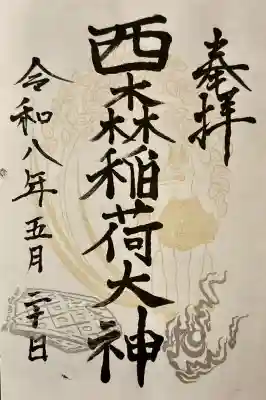 奉拝
西森稲荷大神
令和八年五月二十日